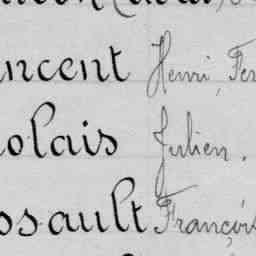 ncent Henri, Fer
olais Julien.
ssault François